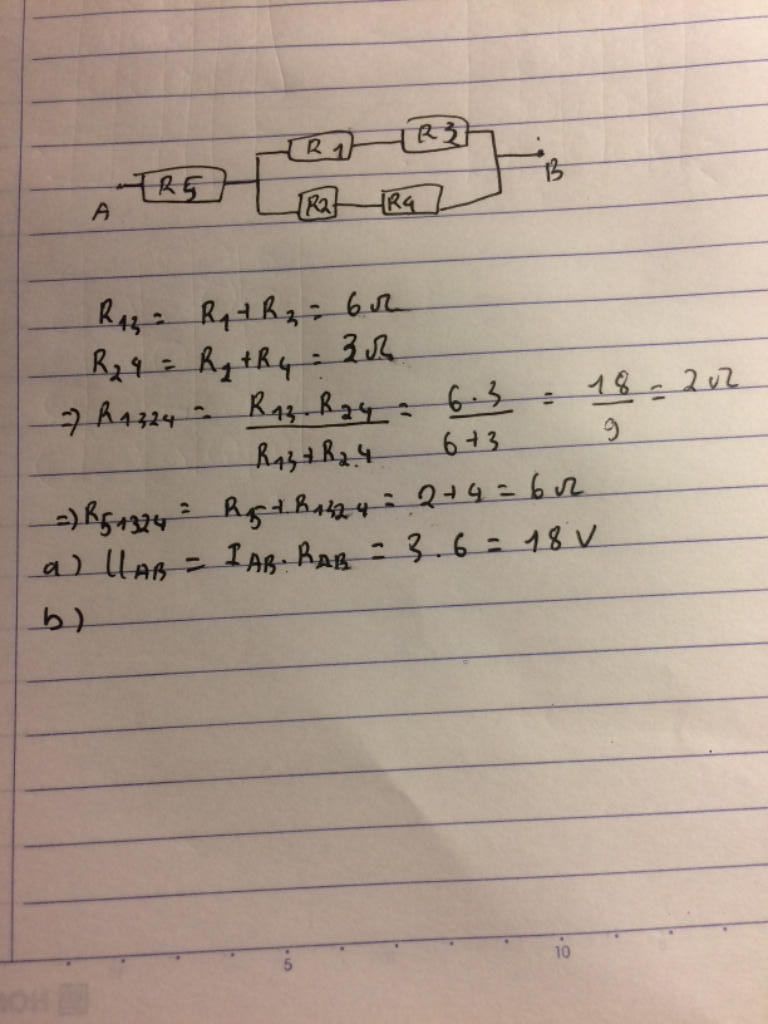 R1 R3
A R5 B
R2 R4
R₁₃ = R₁ + R₃ = 6 Ω
R₂₄ = R₂ + R₄ = 3 Ω
=> R₁₃₂₄ = (R₁₃ . R₂₄) / (R₁₃ + R₂₄) = (6 . 3) / (6 + 3) = 18 / 9 = 2 Ω
=> R₅₁₃₂₄ = R₅ + R₁₃₂₄ = 2 + 4 = 6 Ω
a) U_AB = I_AB . R_AB = 3 . 6 = 18 V
b)
5 10